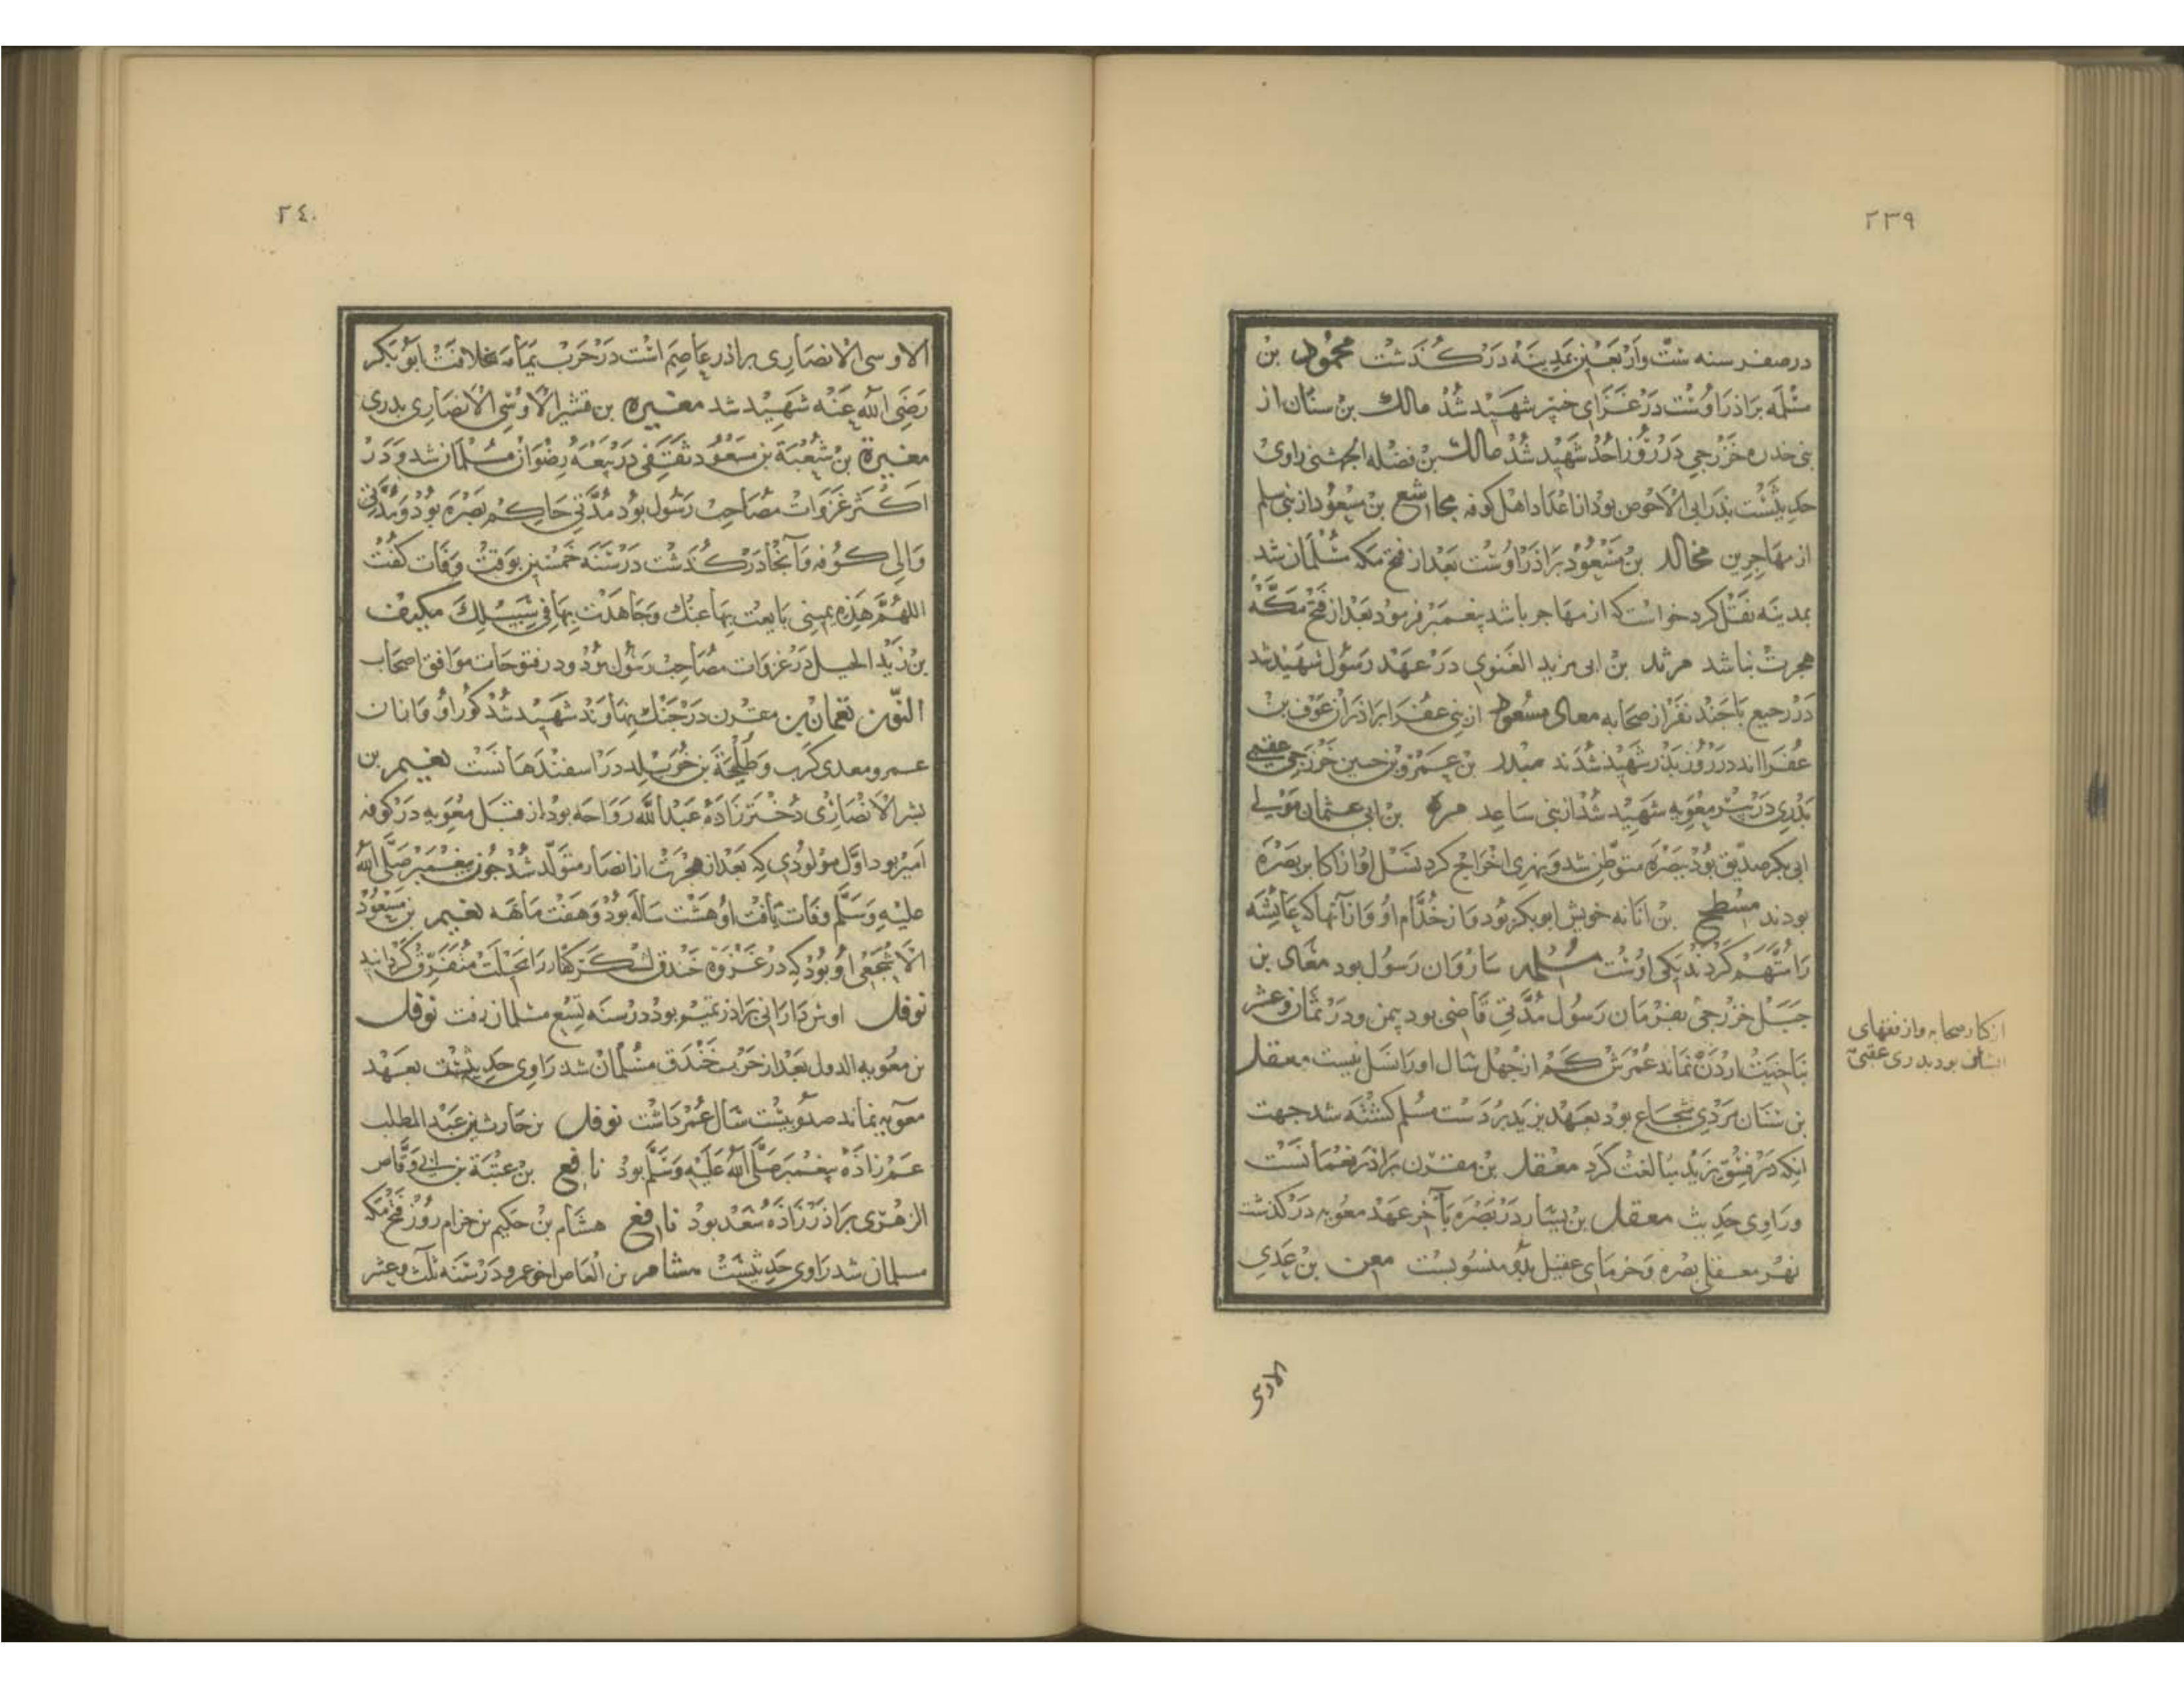 ٢٣٩
در صفر سنه ستّ و اربعین بمدینه در کذشت محمود بن
مسلمه براذر اوست در غزای خیبر شهید شذ مالک بن سنان از
بنی خدره خزرجی در روز احد شهید شذ مالک بن فضله الجشمی راوی
حدیثست بذر ابی الاحوص بود از اعداد اهل کوفه مجاشع بن مسعود از بنی سلم
از مهاجرین مخالد بن مسعود براذر اوست بعد از فتح مکه مسلمان شد
بمدینه نقل کرد خواست که از مهاجر باشد پیغمبر فرمود بعد از فتح مکّه
هجرت نباشد مرثد بن ابی مرثد الغنوی در عهد رسول شهید شد
در رجیع با جند نفر از صحابه معاد مسعود از بنی عفرا براذران عوف بن
عفرااند در روز بذر شهید شدند منذر بن عمرو بن خزرجی عقبی
بدری در بئر معویه شهید شذ از بنی ساعد مره بن ابی عثمان مولی
ابی بکر صدیق بود ببصره متوطن شد و نهری اخراج کرد نسل او از اکابر بصره
بودند مسطح بن اثاثه خویش ابوبکر بود و از خدّام او و از آنها که عایشه
را متّهم کردند یکی اوست مسلم ساروان رسول بود معاد بن
جبل خزرجی بفرمان رسول مدّتی قاضی بود بیمن و در ثمان و عشر
بناحیت اردن نماند عمرش کم از جهل سال او را نسل نیست معقل
بن سنان مردی شجاع بود بعهد یزید بر دست مسلم کشته شد جهت
انکه در فسق یزید مبالغت کرد معقل بن مقرن براذر نعمانست
و راوی حدیث معقل بن یسار در بصره بآخر عهد معویه در کذشت
نهر معقلی بصره و خرمای عقیل بدو منسوبست معن بن عدی
از کبار صحابه و از فقهای
ایشان بود بدری عقبی
الاوسی
٢٤٠
الاوسی الانصاری براذر عاصم است در حرب یمامه بخلافت ابوبکر
رضی الله عنه شهید شد مغیره بن قشیر الاوسی الانصاری بدری
مغیرة بن شعبة بن مسعود ثقفی در بیعه رضوان مسلمان شد و در
اکثر غزوات مصاحب رسول بود مدّتی حاکم بصره بود و مدّتی
والی کوفه و آنجا در کذشت در سنه خمسین بوقت وفات کفت
اللهم هذه یمینی بایعت بها عنک و جاهدت بها فی سبیلک مکیف
بن زید الخیل در غزوات مصاحب رسول بود و در فتوحات موافق اصحاب
النّون نعمان بن مقرن در جنک نهاوند شهید شذ کور او و از آن
عمرو معدی کرب و طلیحة بن خویلد در اسفندهانست نعیم بن
بشر الانصاری دخترزاده عبدالله رواحه بود از قبل معویه در کوفه
امیر بود اوّل مولودی که بعد از هجرت از انصار متولّد شد جون پیغمبر صلّی الله
علیه وسلّم وفات یافت او هشت ساله بود و هفت ماهه نعیم بن مسعود
الاشجعی او بود که در غزوه خندق لشکر کفار را بحیلت متفرق کردانید
نوفل اوس دارانی براذر تمیم بود در سنه تسع مسلمان رفت نوفل
بن معویه الدول بعد از حرب خندق مسلمان شد راوی حدیثست بعهد
معویه نماند صد و بیست سال عمر داشت نوفل بن حارث بن عبد المطلب
عم زاده پیغمبر صلّی الله علیه وسلّم بود نافع بن عتبة بن ابی وقّاص
الزهری براذرزاده سعد بود نافع هشام بن حکیم بن حزام روز فتح مکه
مسلمان شد راوی حدیثست مشامر بن العاص اخو عمرو در سنه ثلث و عشر